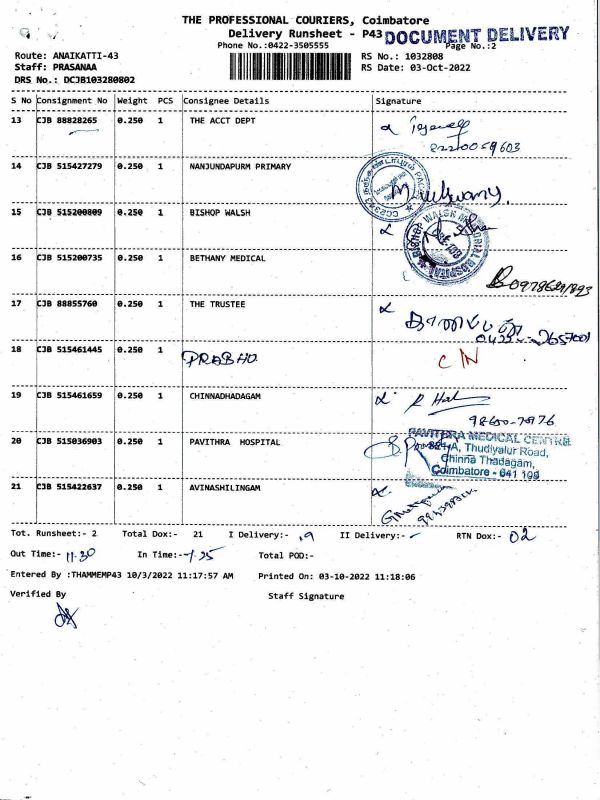 THE PROFESSIONAL COURIERS, Coimbatore
Delivery Runsheet - P43 DOCUMENT DELIVERY
Phone No.:0422-3505555 Page No.:2
Route: ANAIKATTI-43 RS No.: 1032808
Staff: PRASANAA RS Date: 03-Oct-2022
DRS No.: DCJB103280802
S No Consignment No Weight PCS Consignee Details Signature
13 CJB 88828265 0.250 1 THE ACCT DEPT
14 CJB 515427279 0.250 1 NANJUNDAPURM PRIMARY
15 CJB 515200809 0.250 1 BISHOP WALSH
16 CJB 515200735 0.250 1 BETHANY MEDICAL
17 CJB 88855760 0.250 1 THE TRUSTEE
18 CJB 515461445 0.250 1 PRABHU C/N
19 CJB 515461659 0.250 1 CHINNADHADAGAM
20 CJB 515036903 0.250 1 PAVITHRA HOSPITAL
PAVITHRA MEDICAL CENTRE
Thudiyalur Road,
Chinna Thadagam,
Coimbatore - 641 108
21 CJB 515422637 0.250 1 AVINASHILINGAM
Tot. Runsheet:- 2 Total Dox:- 21 I Delivery:- 19 II Delivery:- - RTN Dox:- 02
Out Time:- 11.30 In Time:- 1.25 Total POD:-
Entered By :THAMMEMP43 10/3/2022 11:17:57 AM Printed On: 03-10-2022 11:18:06
Verified By Staff Signature